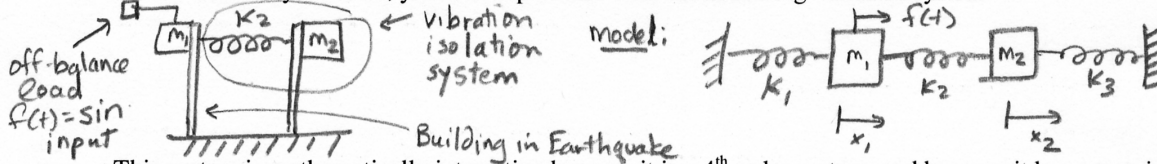 K2
m1
m2
off-balance
load
f(t)=sin
input
vibration
isolation
system
Building in Earthquake
model:
f(t)
m1
m2
K1
K2
K3
x1
x2